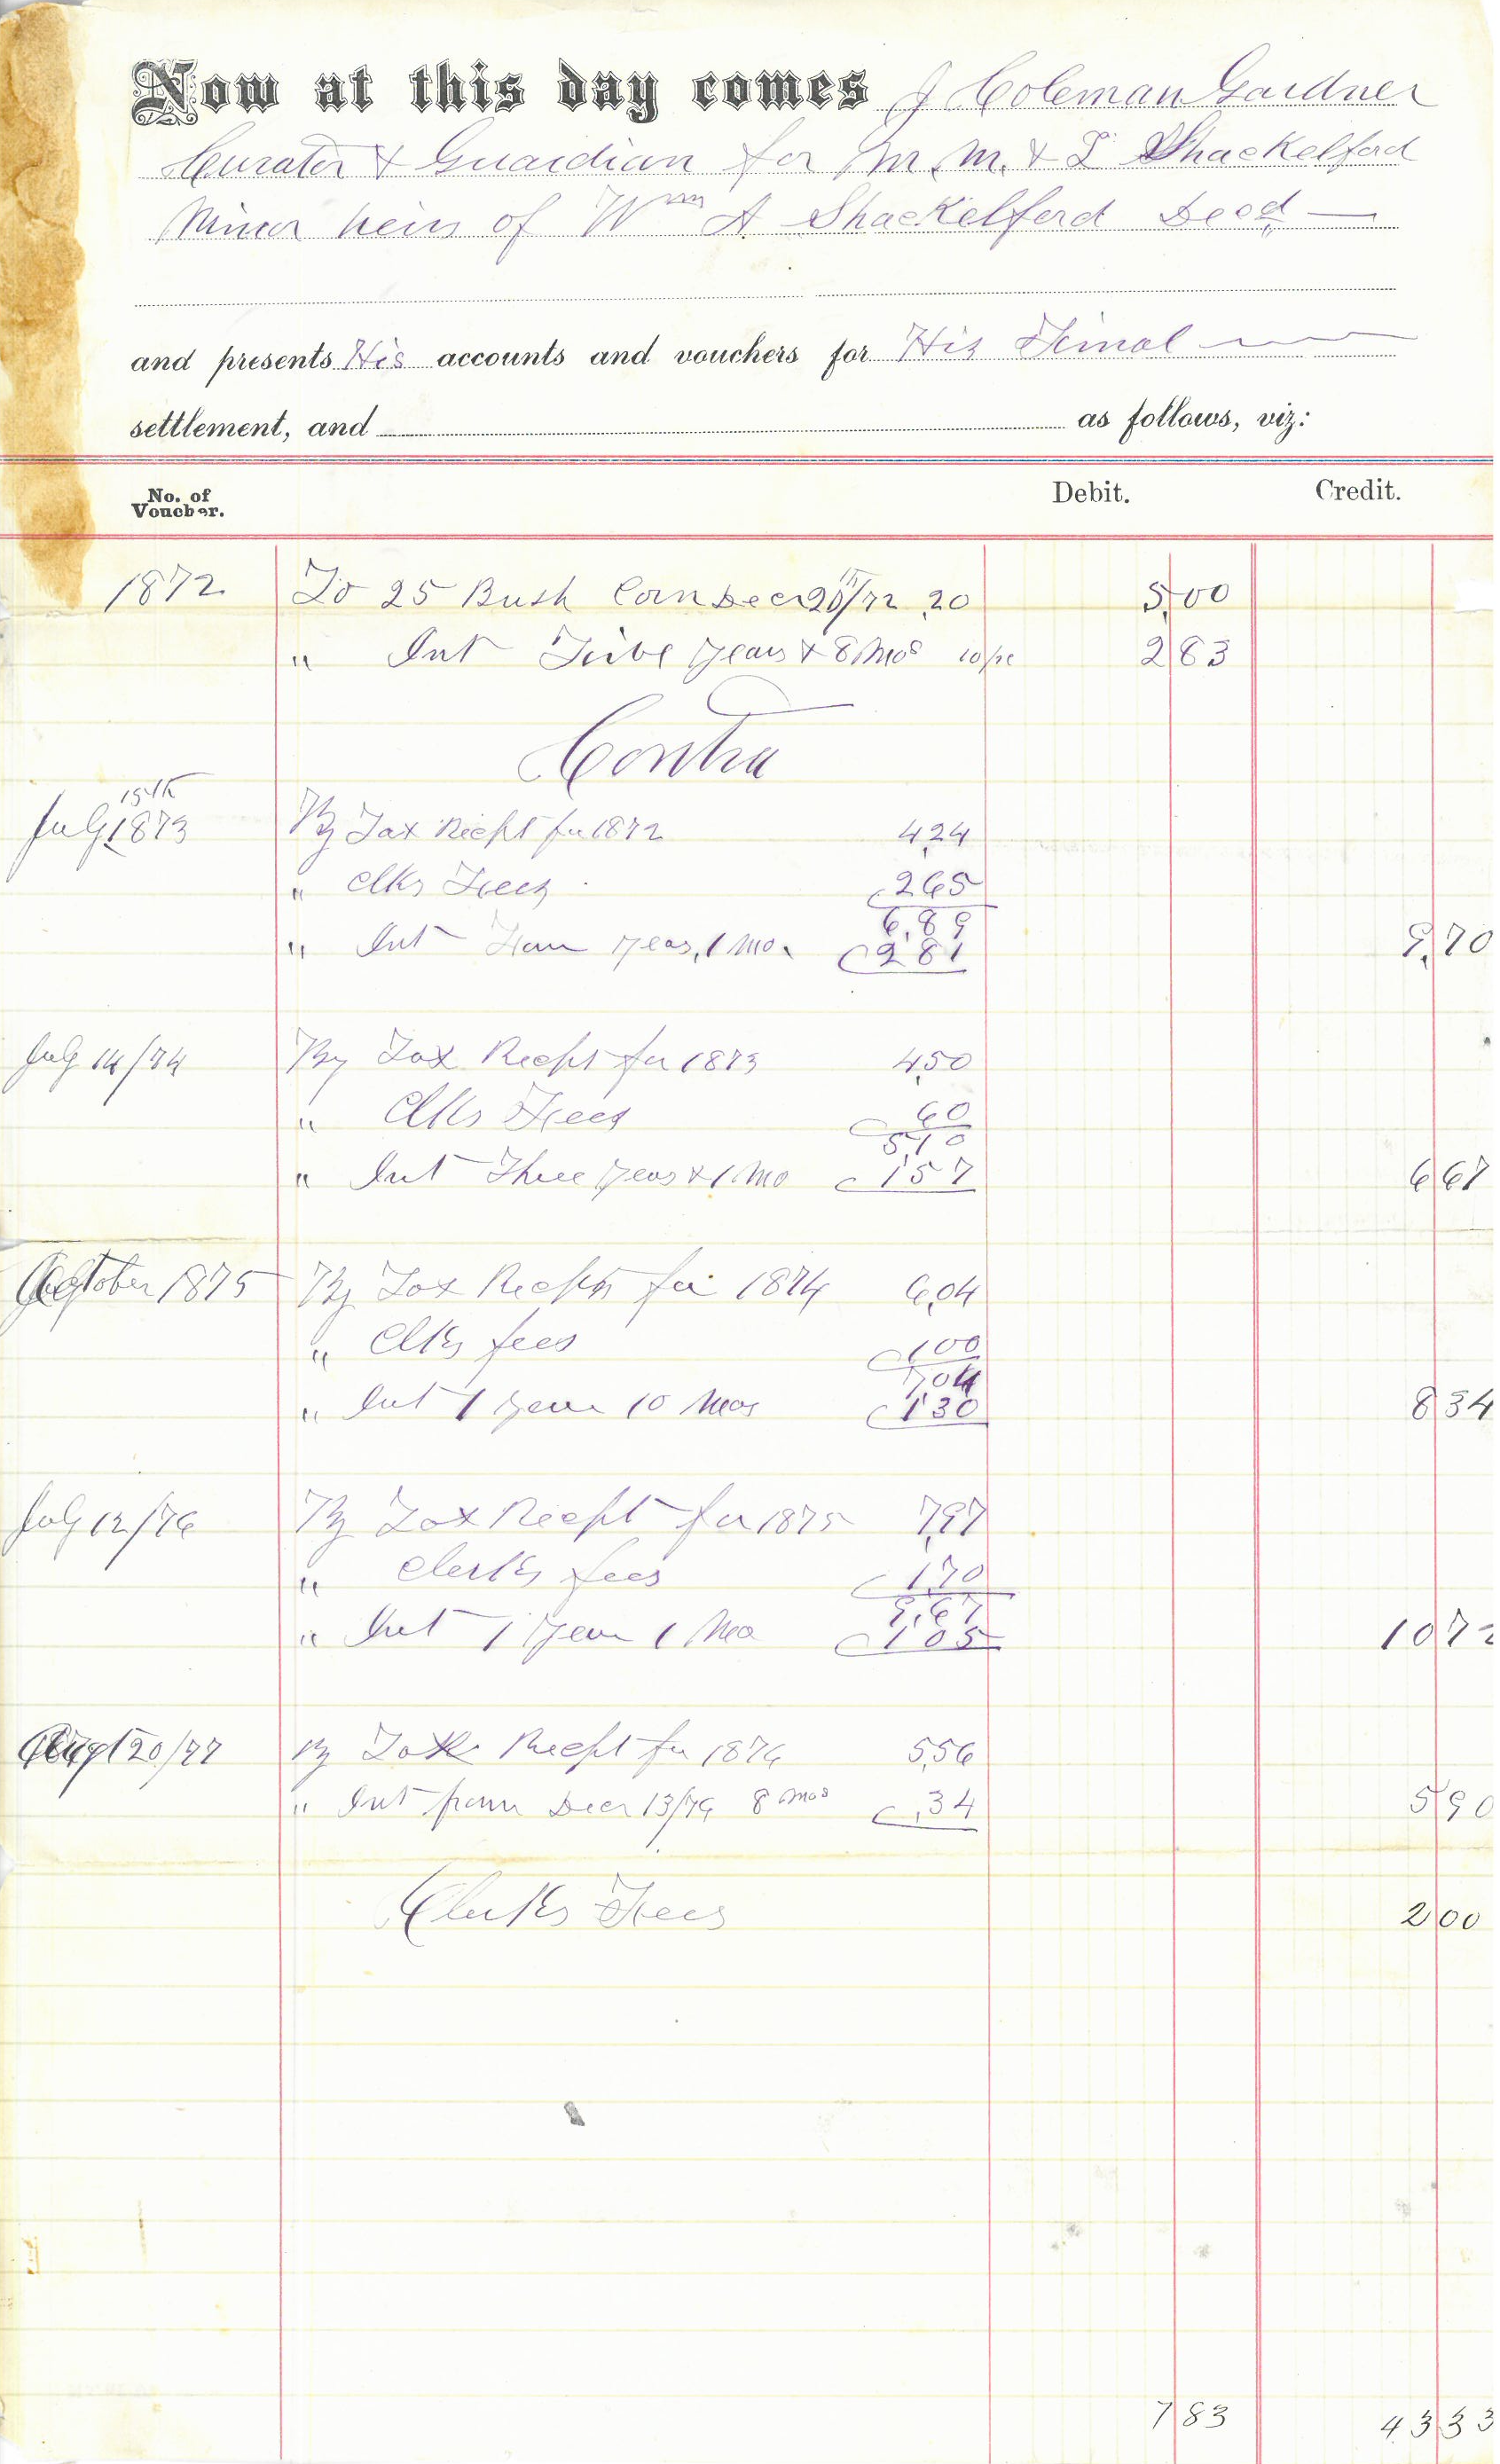 Now at this day comes J Coleman Gardner
Curator & Guardian for M. M. & L Shackelford
Minor heirs of Wm A Shackelford Decd
and presents His accounts and vouchers for His Final
settlement, and as follows, viz:
No. of Voucher. Debit. Credit.
1872 To 25 Bush Corn Decr 20/72 .20 5,00
" Int Five years & 8 Mos 10/pc 2 83
Contra
July 15th 1873 By Tax Recpt for 1872 4,24
" Clks Fees 2 65
6,89
" Int Four years, 1 Mo. 2 81 9,70
July 14/74 By Tax Recpt for 1873 4,50
" Clks Fees 60
5,10
" Int Three years & 1 Mo 1 57 6 67
October 1875 By Tax Recpts for 1874 6,04
" Clks fees 1 00
7,04
" Int 1 year 10 Mos 1 30 8 34
July 12/76 By Tax Recpt for 1875 7,97
" Clerks fees 1,70
9,67
" Int 1 year 1 Mo 1 05 10 72
Augt 20/77 By Tax Recpt for 1876 5,56
" Int from Decr 13/76 8 Mos ,34 5 90
Clerks Fees 2 00
7 83 43 33